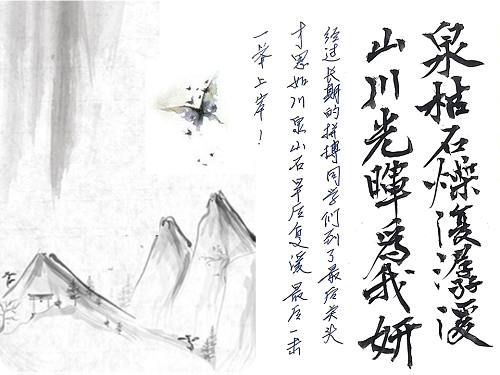 泉枯石燥復潺湲
山川光暉為我妍
经过长期的拼搏同学们到了最后关头
才思如川泉山石旱后复湲 最后一击
一举上岸！